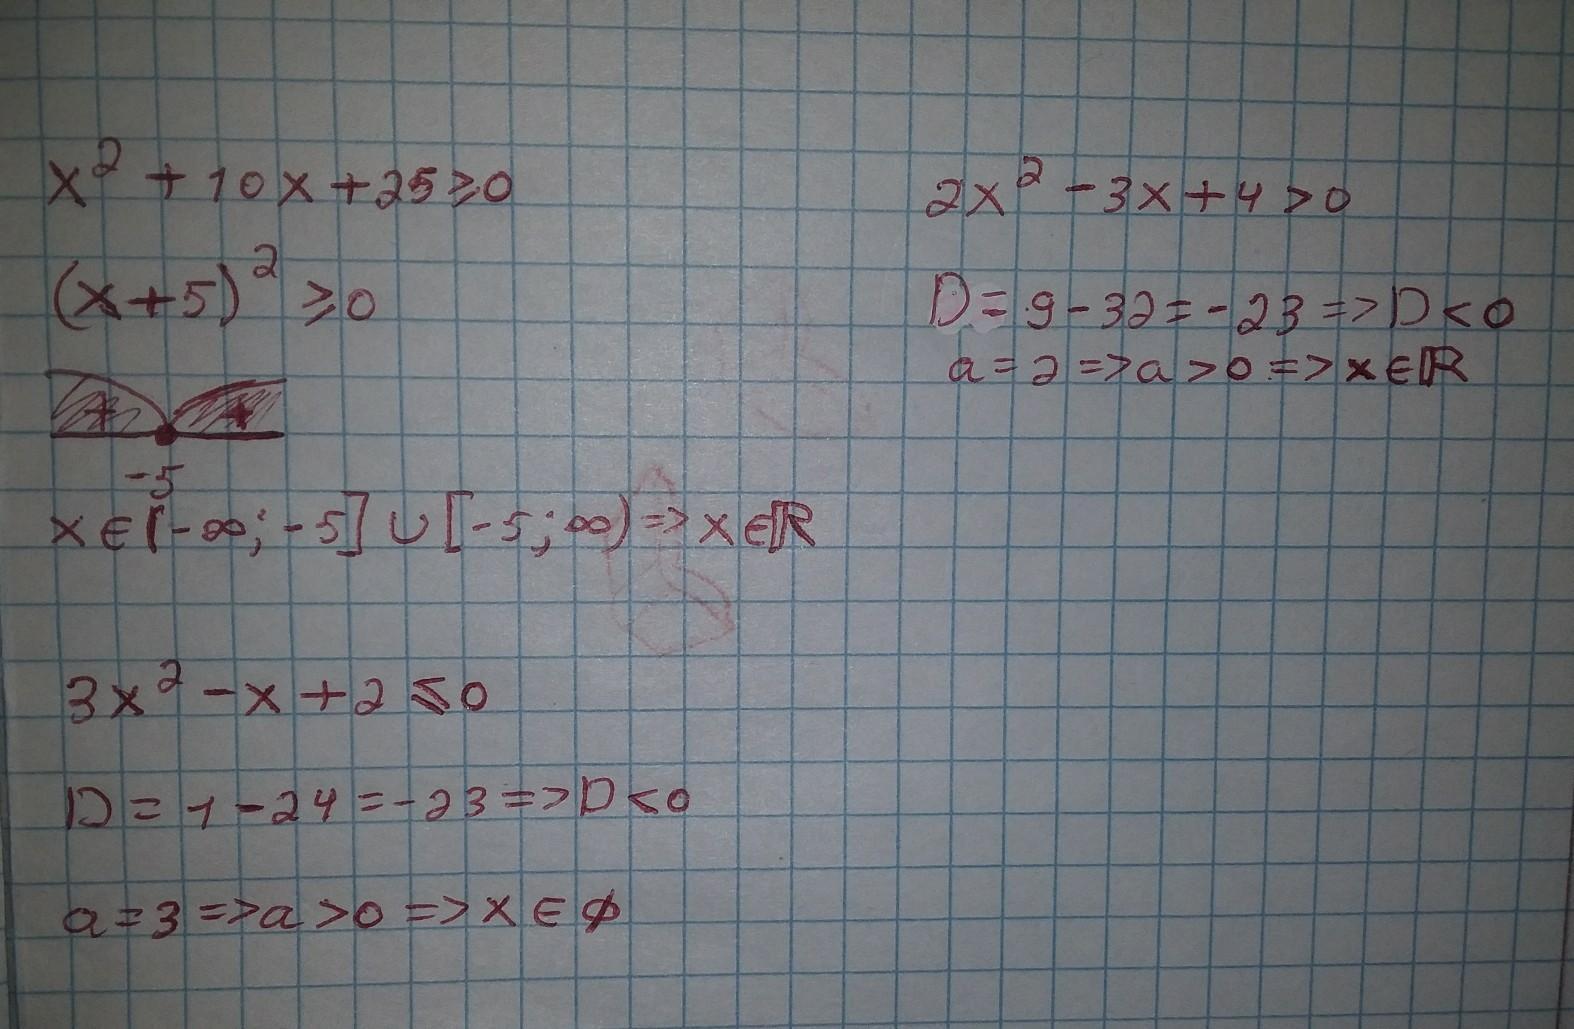 x² + 10x + 25 ≥ 0
(x + 5)² ≥ 0
+ +
-5
x ∈ [-∞; -5] ∪ [-5; ∞) => x ∈ ℝ
3x² - x + 2 ≤ 0
D = 1 - 24 = -23 => D < 0
a = 3 => a > 0 => x ∈ ∅
2x² - 3x + 4 > 0
D = 9 - 32 = -23 => D < 0
a = 2 => a > 0 => x ∈ ℝ